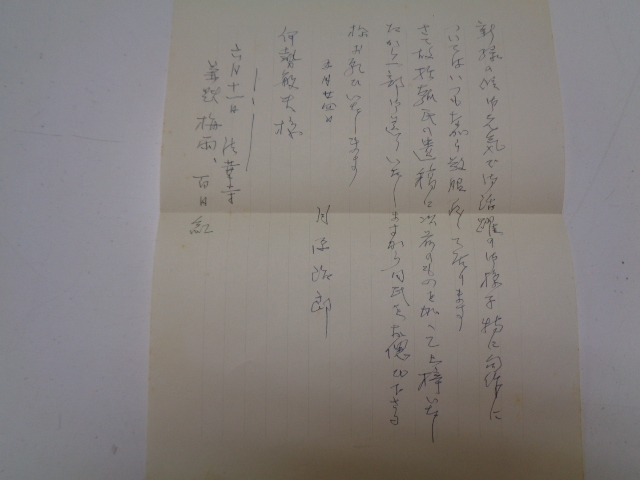 新緑の候御元気で御活躍の御様子特に句作に
ついてはいつもながら敬服して居ります
さて故 氏の遺稿に以前のものを加へて上梓いたし
たから一部御送りいたしますから同氏をお偲び下さる
様お願ひいたします
五月廿四日
月 郎
伊勢敏夫様
六月十一日 法華寺
兼題 梅雨、百日紅